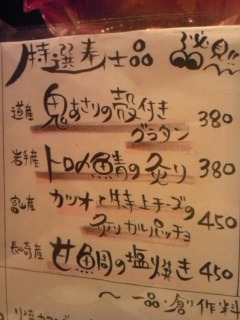 特選奉仕品 必見!!
道産 鬼あさりの殻付き
グラタン 380
岩手産 トロ〆鯖の炙り 380
富山産 カツオと特上チーズの
炙りカルパッチョ 450
長崎産 甘鯛の塩焼き 450
〜一品・創作料